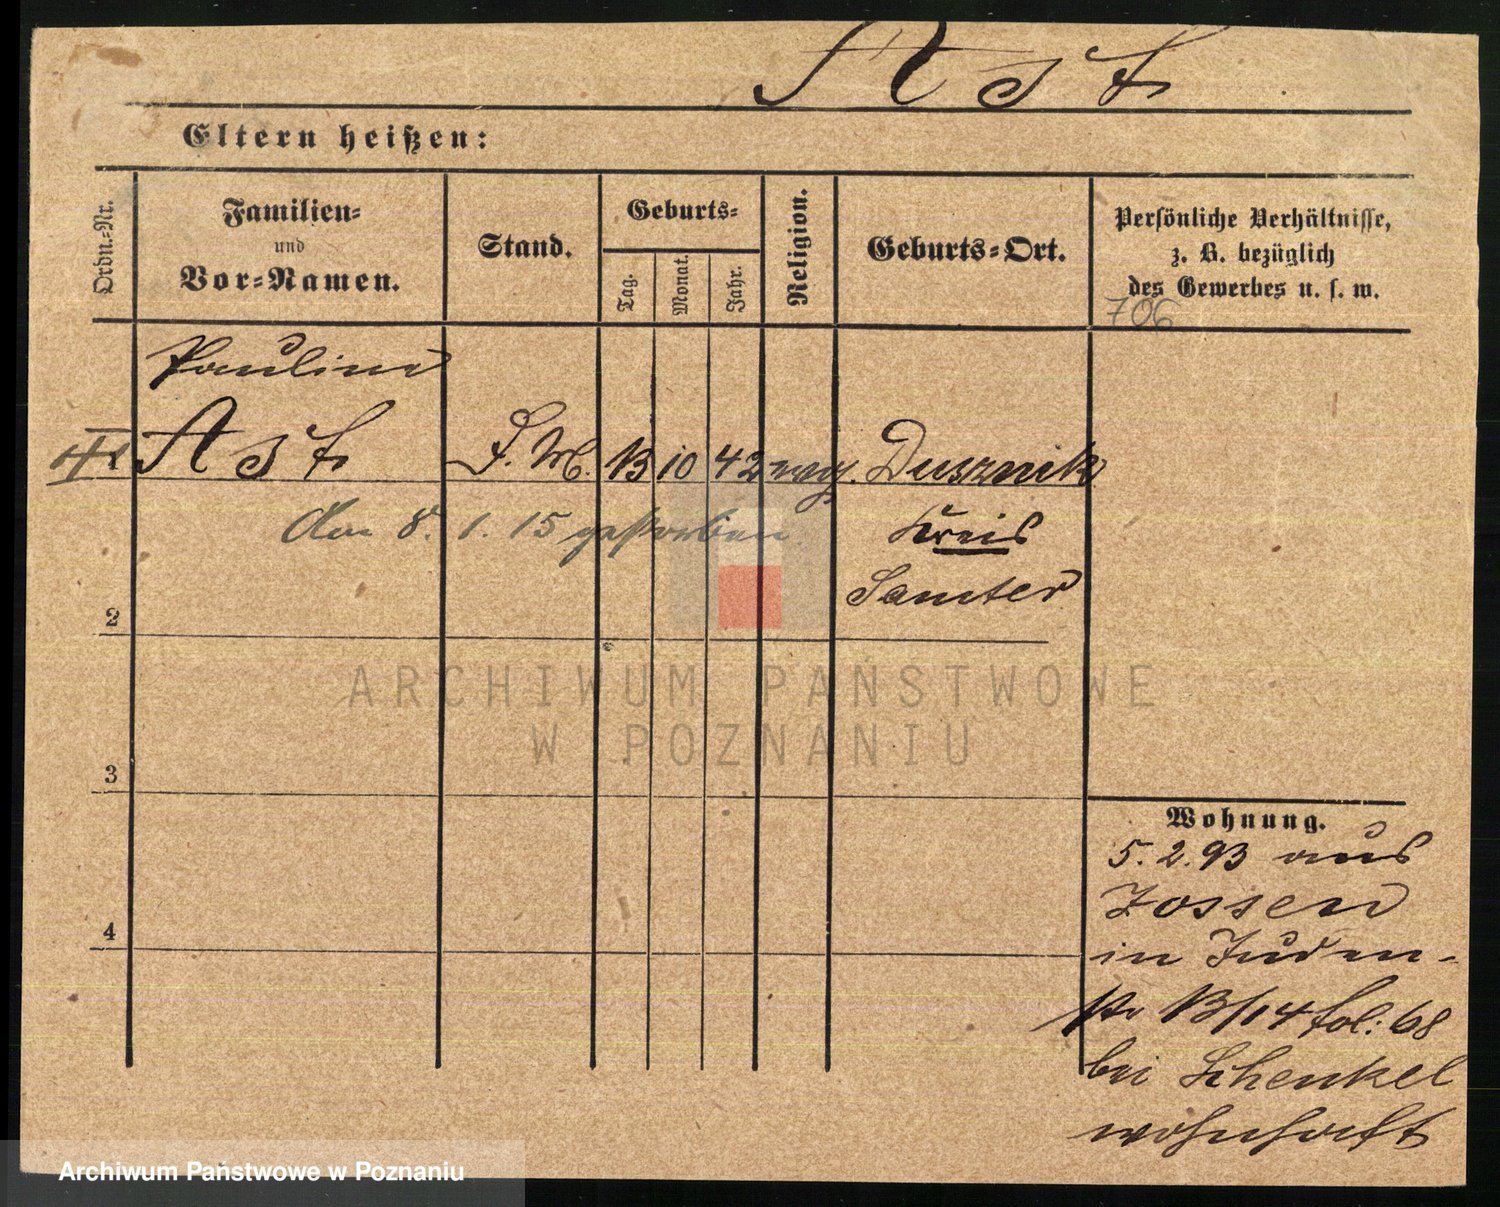 Ast
Eltern heißen:
Ordn.-Nr.
Familien-
und
Vor-Namen.
Stand.
Geburts-
Tag.
Monat.
Jahr.
Religion.
Geburts-Ort.
Persönliche Verhältnisse,
z. B. bezüglich
des Gewerbes u. s. w.
706
Pauline
Ast D. M. 13 10 42 evg. Dusznik
den 8. 1. 15 gestorben. Kreis
Samter
2
3
4
Wohnung.
5. 2. 93 aus
Zossen
in Juden-
str 13/14 fol: 68
bei Schenkel
wohnhaft
ARCHIWUM PAŃSTWOWE
W POZNANIU
Archiwum Państwowe w Poznaniu